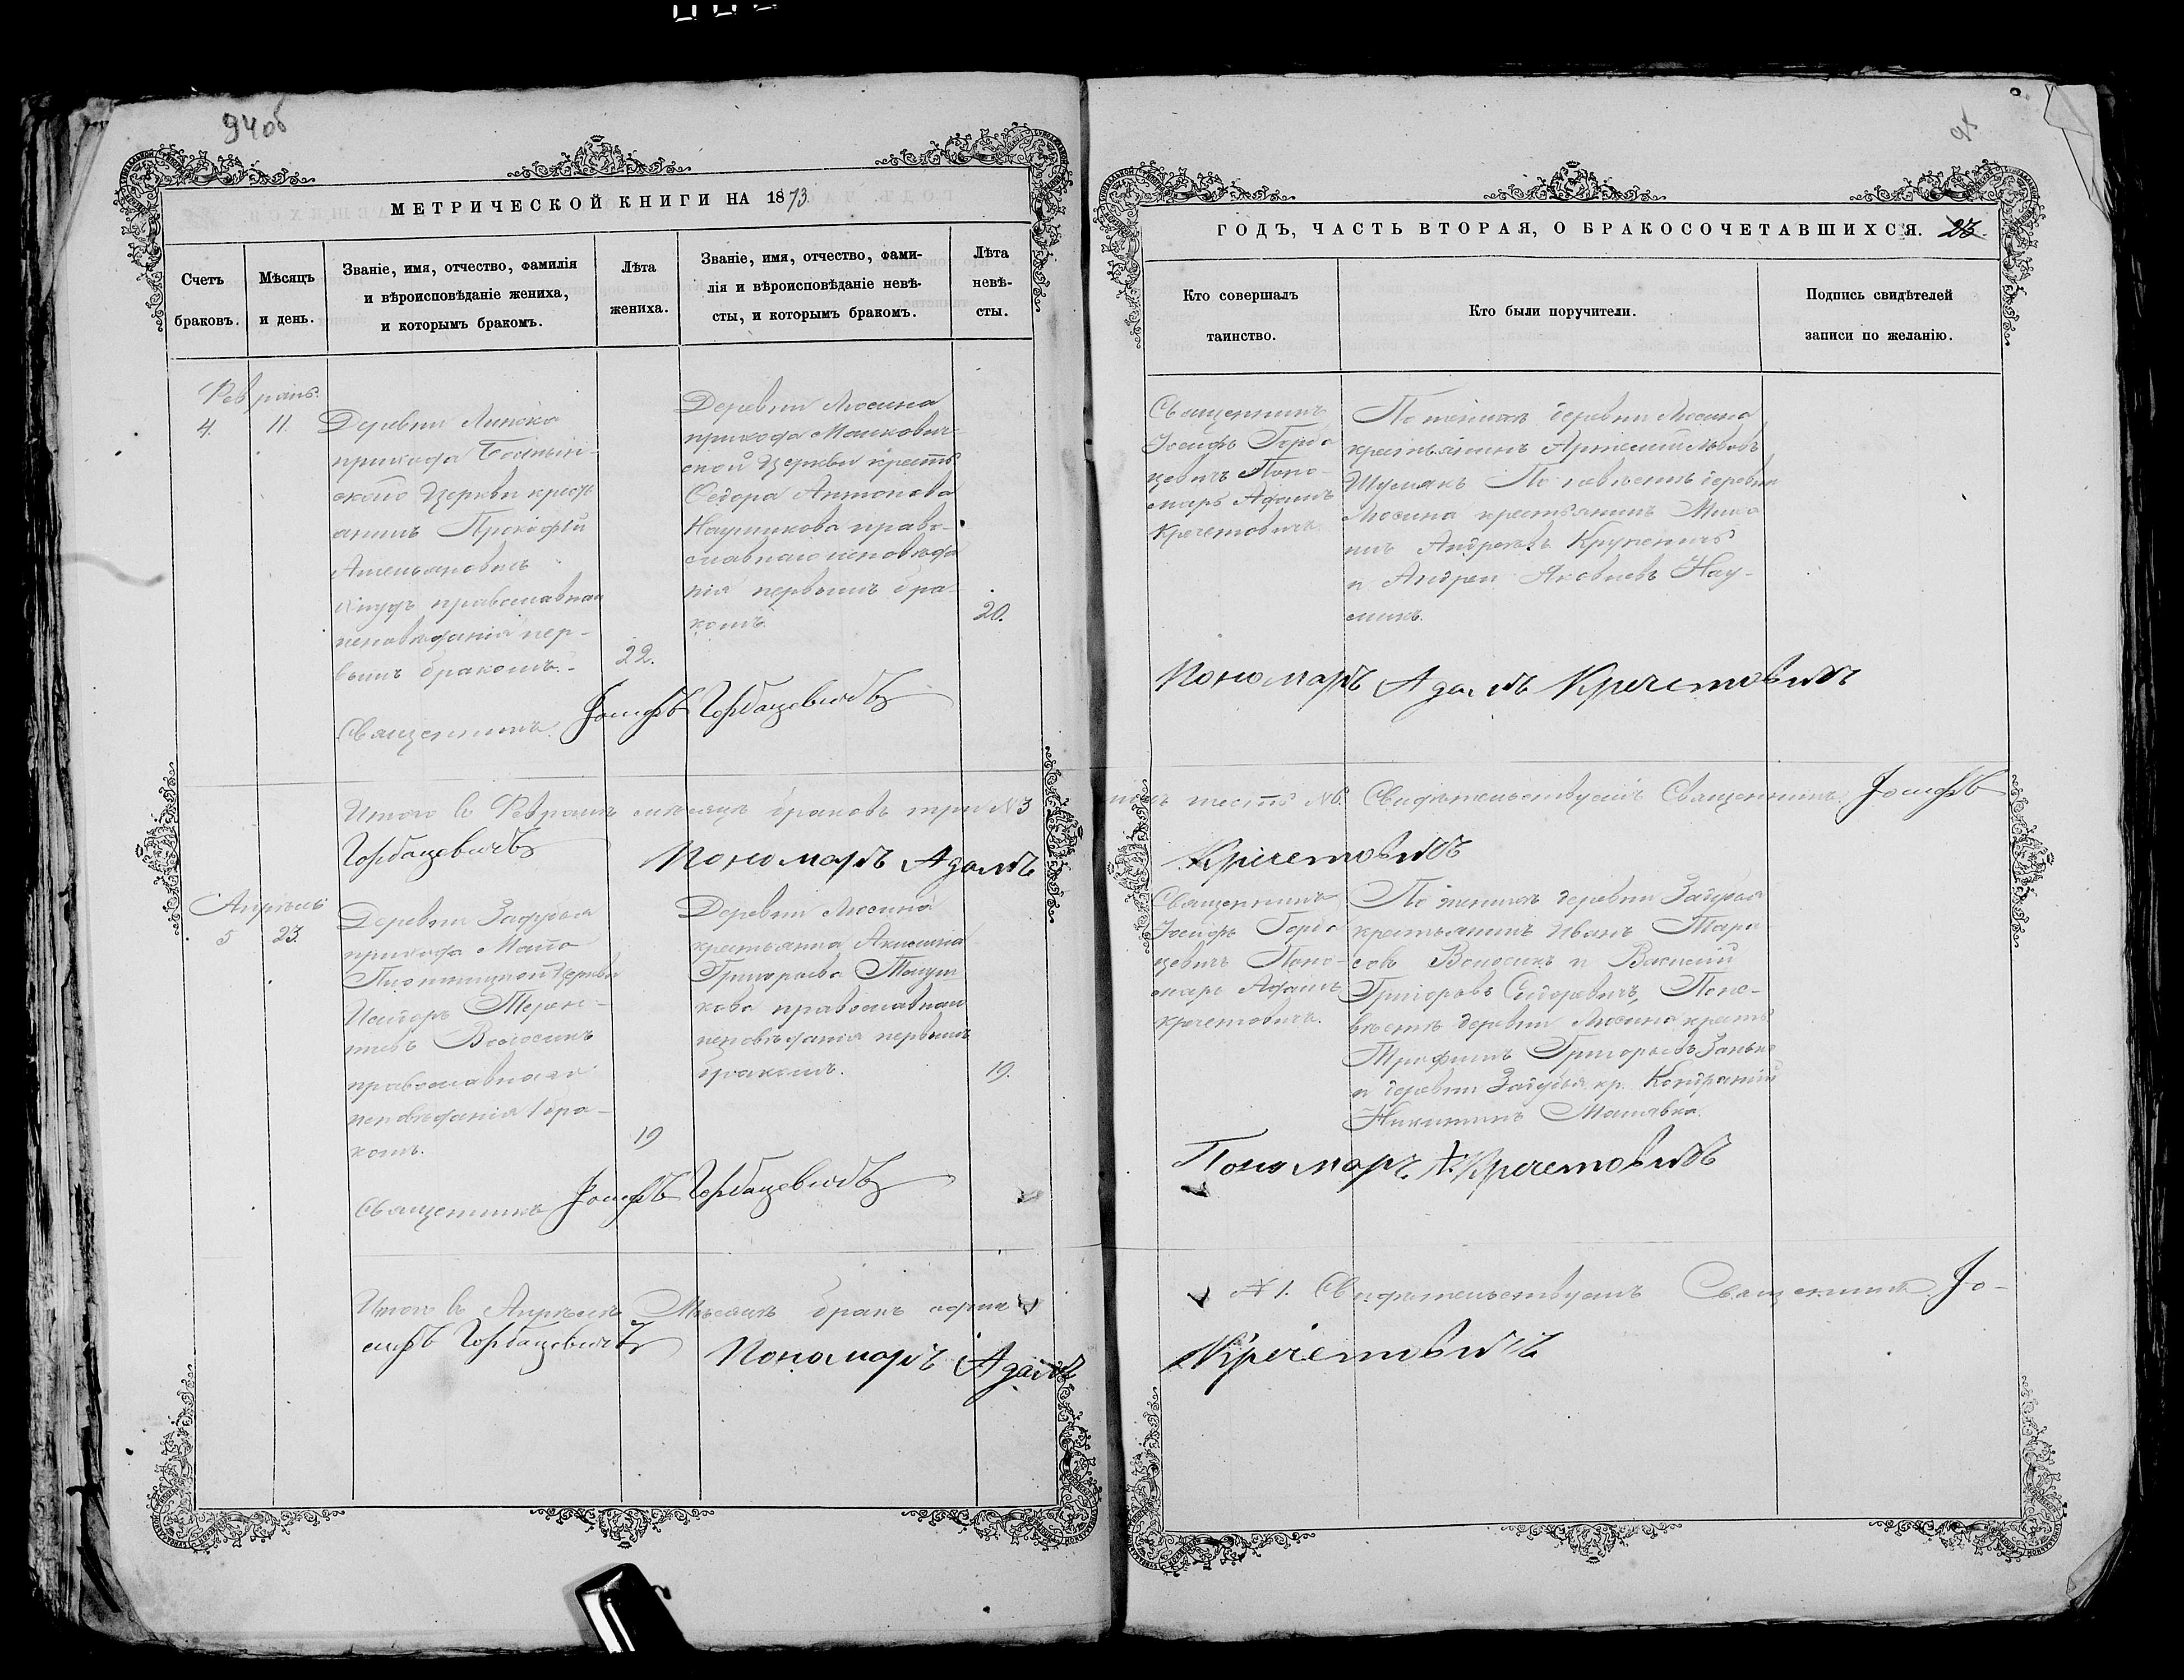 94об
МЕТРИЧЕСКОЙ КНИГИ НА 1873
Счетъ
браковъ.
Мѣсяцъ
и день.
Званіе, имя, отчество, фамилія
и вѣроисповѣданіе жениха,
и которымъ бракомъ.
Лѣта
жениха.
Званіе, имя, отчество, фами-
лія и вѣроисповѣданіе невѣ-
сты, и которымъ бракомъ.
Лѣта
невѣ-
сты.
Февраль
4. 11.
Деревни Липска
прихода
скою Церкви крест
анинъ Прокофій
Амельяновъ
православнаго
исповѣданія пер-
вымъ бракомъ.
22.
Деревни Люсина
прихода Маньковичс-
кой Церкви крест
Федора Антонова
Наумикова право-
славнаго исповѣда
нія первымъ бра-
комъ
20.
Священникъ Іосифъ Горбацевичъ
Итого в Февралѣ мѣсяцѣ браковъ три №3
Горбацевичъ Пономарь Адамъ
Апрѣль
5 23.
Деревни Загубья
прихода Мало
Плотницкой Церкви
Исидоръ Терен-
тіевъ Волосинъ
православнаго
исповѣданія 1 бра-
комъ.
19
Деревни Люсина
крестьянка Акилина
Григорьева
кова православнаго
исповѣданія первымъ
бракомъ.
19.
Священникъ Іосифъ Горбацевичъ
Итого в Апрѣлѣ Мѣсяцѣ бракъ одинъ
сифъ Горбацевичъ Пономарь Адамъ
ГОДЪ, ЧАСТЬ ВТОРАЯ, О БРАКОСОЧЕТАВШИХСЯ. 23.
Кто совершалъ
таинство.
Кто были поручители.
Подпись свидѣтелей
записи по желанію.
Священникъ
Іосифъ Горба
цевичъ Поно-
марь Адамъ
Кречетовичъ
По женихѣ деревни Люсина
крестьянинъ Артемій Львовъ
Шумакъ По невѣстѣ деревни
Люсина крестьянинъ
Андреевъ Крупеничъ
и Андрей Яковлевъ Нау-
микъ.
Пономарь Адамъ Кречетовичъ
№6. Свидѣтельствуемъ Священникъ Іосифъ
Кречетовичъ
Священникъ
Іосифъ Горба
цевичъ Поно-
марь Адамъ
Кречетовичъ.
По женихѣ деревни Загубья
крестьянинъ Иванъ Тара
совъ Волосинъ и Василій
Григорьевъ Сидоревичъ, По не-
вѣстѣ деревни Люсина крест
Трофимъ Григорьевъ
и деревни Загубья кр. Кондратій
Никитинъ Малявка.
Пономарь А. Кречетовичъ
№ 1. Свидѣтельствуемъ Священникъ Іо-
Кречетовичъ